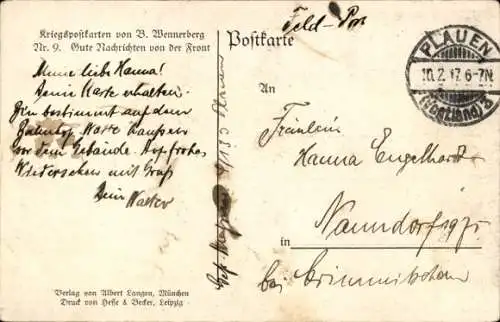 Kriegspostkarten von B. Wennerberg
Nr. 9. Gute Nachrichten von der Front
Feld-Post
Postkarte
PLAUEN
10.2.17. 6-7N.
(Vogtland) 3
An
Fräulein
Hanna Engelhardt
Naundorf
in
bei Crimmitschau
Meine liebe Hanna!
Deine Karte erhalten.
Bin bestimmt auf dem
Bahnhof. Warte draußen
vor dem Gebäude. Auf frohes
Wiedersehen mit Gruß
Dein Walter
Verlag von Albert Langen, München
Druck von Hesse & Becker, Leipzig